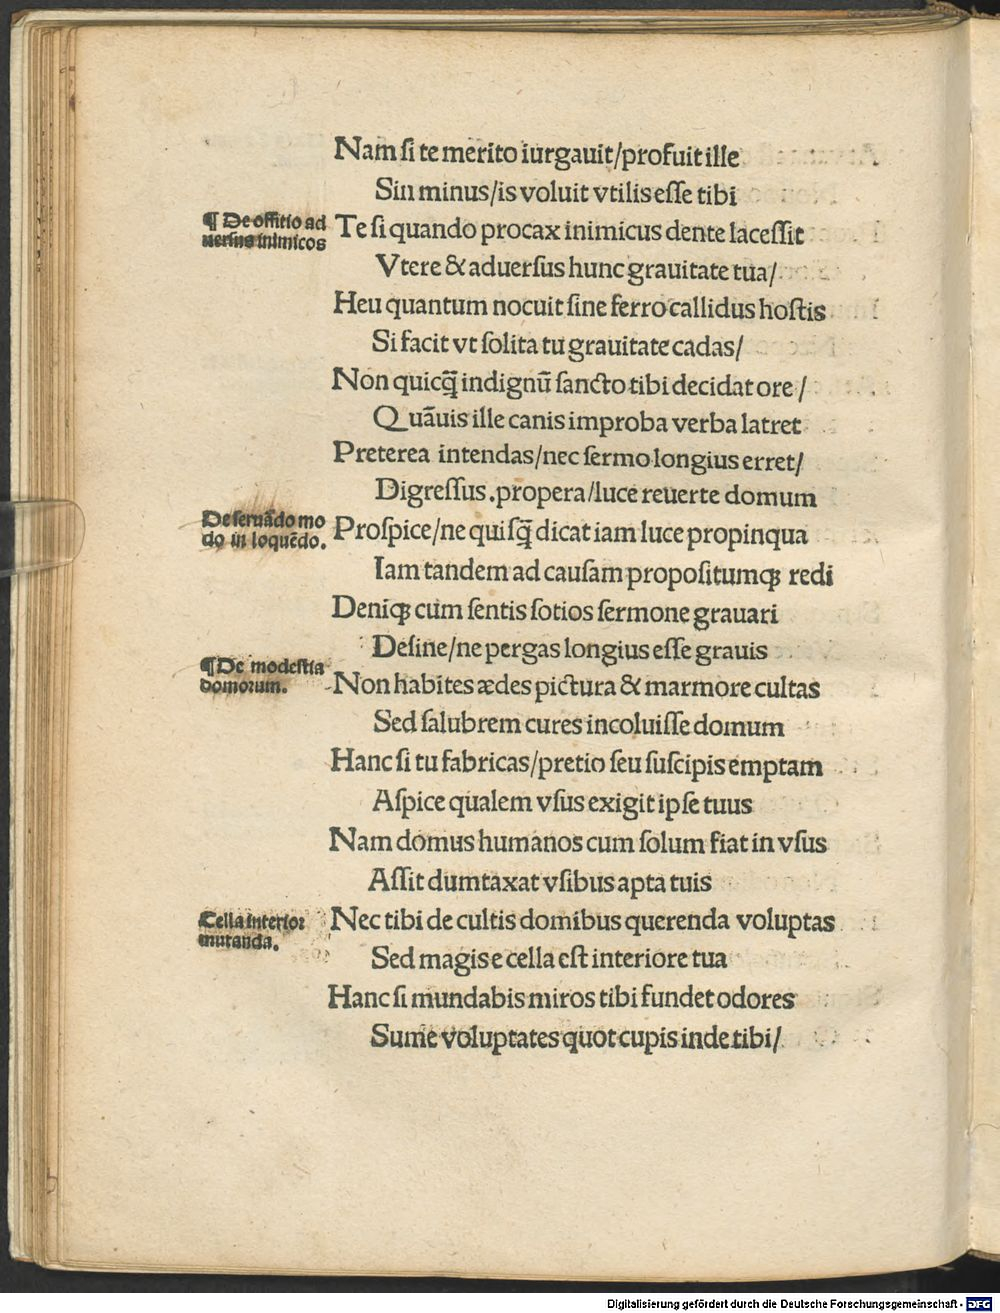 Nam ſi te merito iurgauit/profuit ille
Sin minus/is voluit vtilis eſſe tibi
¶ De offitio ad
uerſus inimicos
Te ſi quando procax inimicus dente laceſſit
Vtere & aduerſus hunc grauitate tua/
Heu quantum nocuit ſine ferro callidus hoſtis
Si facit vt ſolita tu grauitate cadas/
Non quicq̃ indignũ ſancto tibi decidat ore/
Quãuis ille canis improba verba latret
Preterea intendas/nec ſermo longius erret/
Digreſſus.propera/luce reuerte domum
De ſeruãdo mo
do in loquẽdo.
Proſpice/ne quiſq̃ dicat iam luce propinqua
Iam tandem ad cauſam propoſitumqꝫ redi
Deniqꝫ cum ſentis ſotios ſermone grauari
Deſine/ne pergas longius eſſe grauis
¶ De modeſtia
domorum.
Non habites ædes pictura & marmore cultas
Sed ſalubrem cures incoluiſſe domum
Hanc ſi tu fabricas/pretio ſeu ſuſcipis emptam
Aſpice qualem vſus exigit ipſe tuus
Nam domus humanos cum ſolum fiat in vſus
Aſſit dumtaxat vſibus apta tuis
Cella interior
mutanda.
Nec tibi de cultis domibus querenda voluptas
Sed magis e cella eſt interiore tua
Hanc ſi mundabis miros tibi fundet odores
Sume voluptates quot cupis inde tibi/
Digitalisierung gefördert durch die Deutsche Forschungsgemeinschaft - DFG